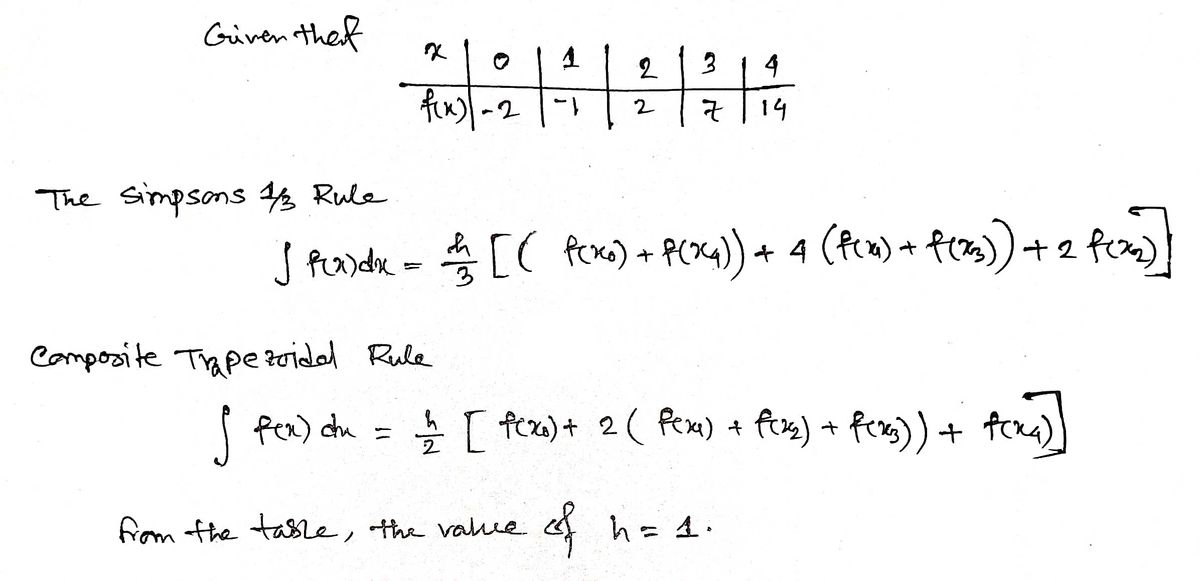 Given that
x | 0 | 1 | 2 | 3 | 4
f(x) | -2 | -1 | 2 | 7 | 14
The Simpsons 1/3 Rule
∫ f(x)dx = h/3 [( f(x₀) + f(x₄)) + 4 (f(x₁) + f(x₃)) + 2 f(x₂)]
Composite Trapezoidal Rule
∫ f(x) dx = h/2 [ f(x₀) + 2 ( f(x₁) + f(x₂) + f(x₃)) + f(x₄)]
from the table, the value of h = 1.